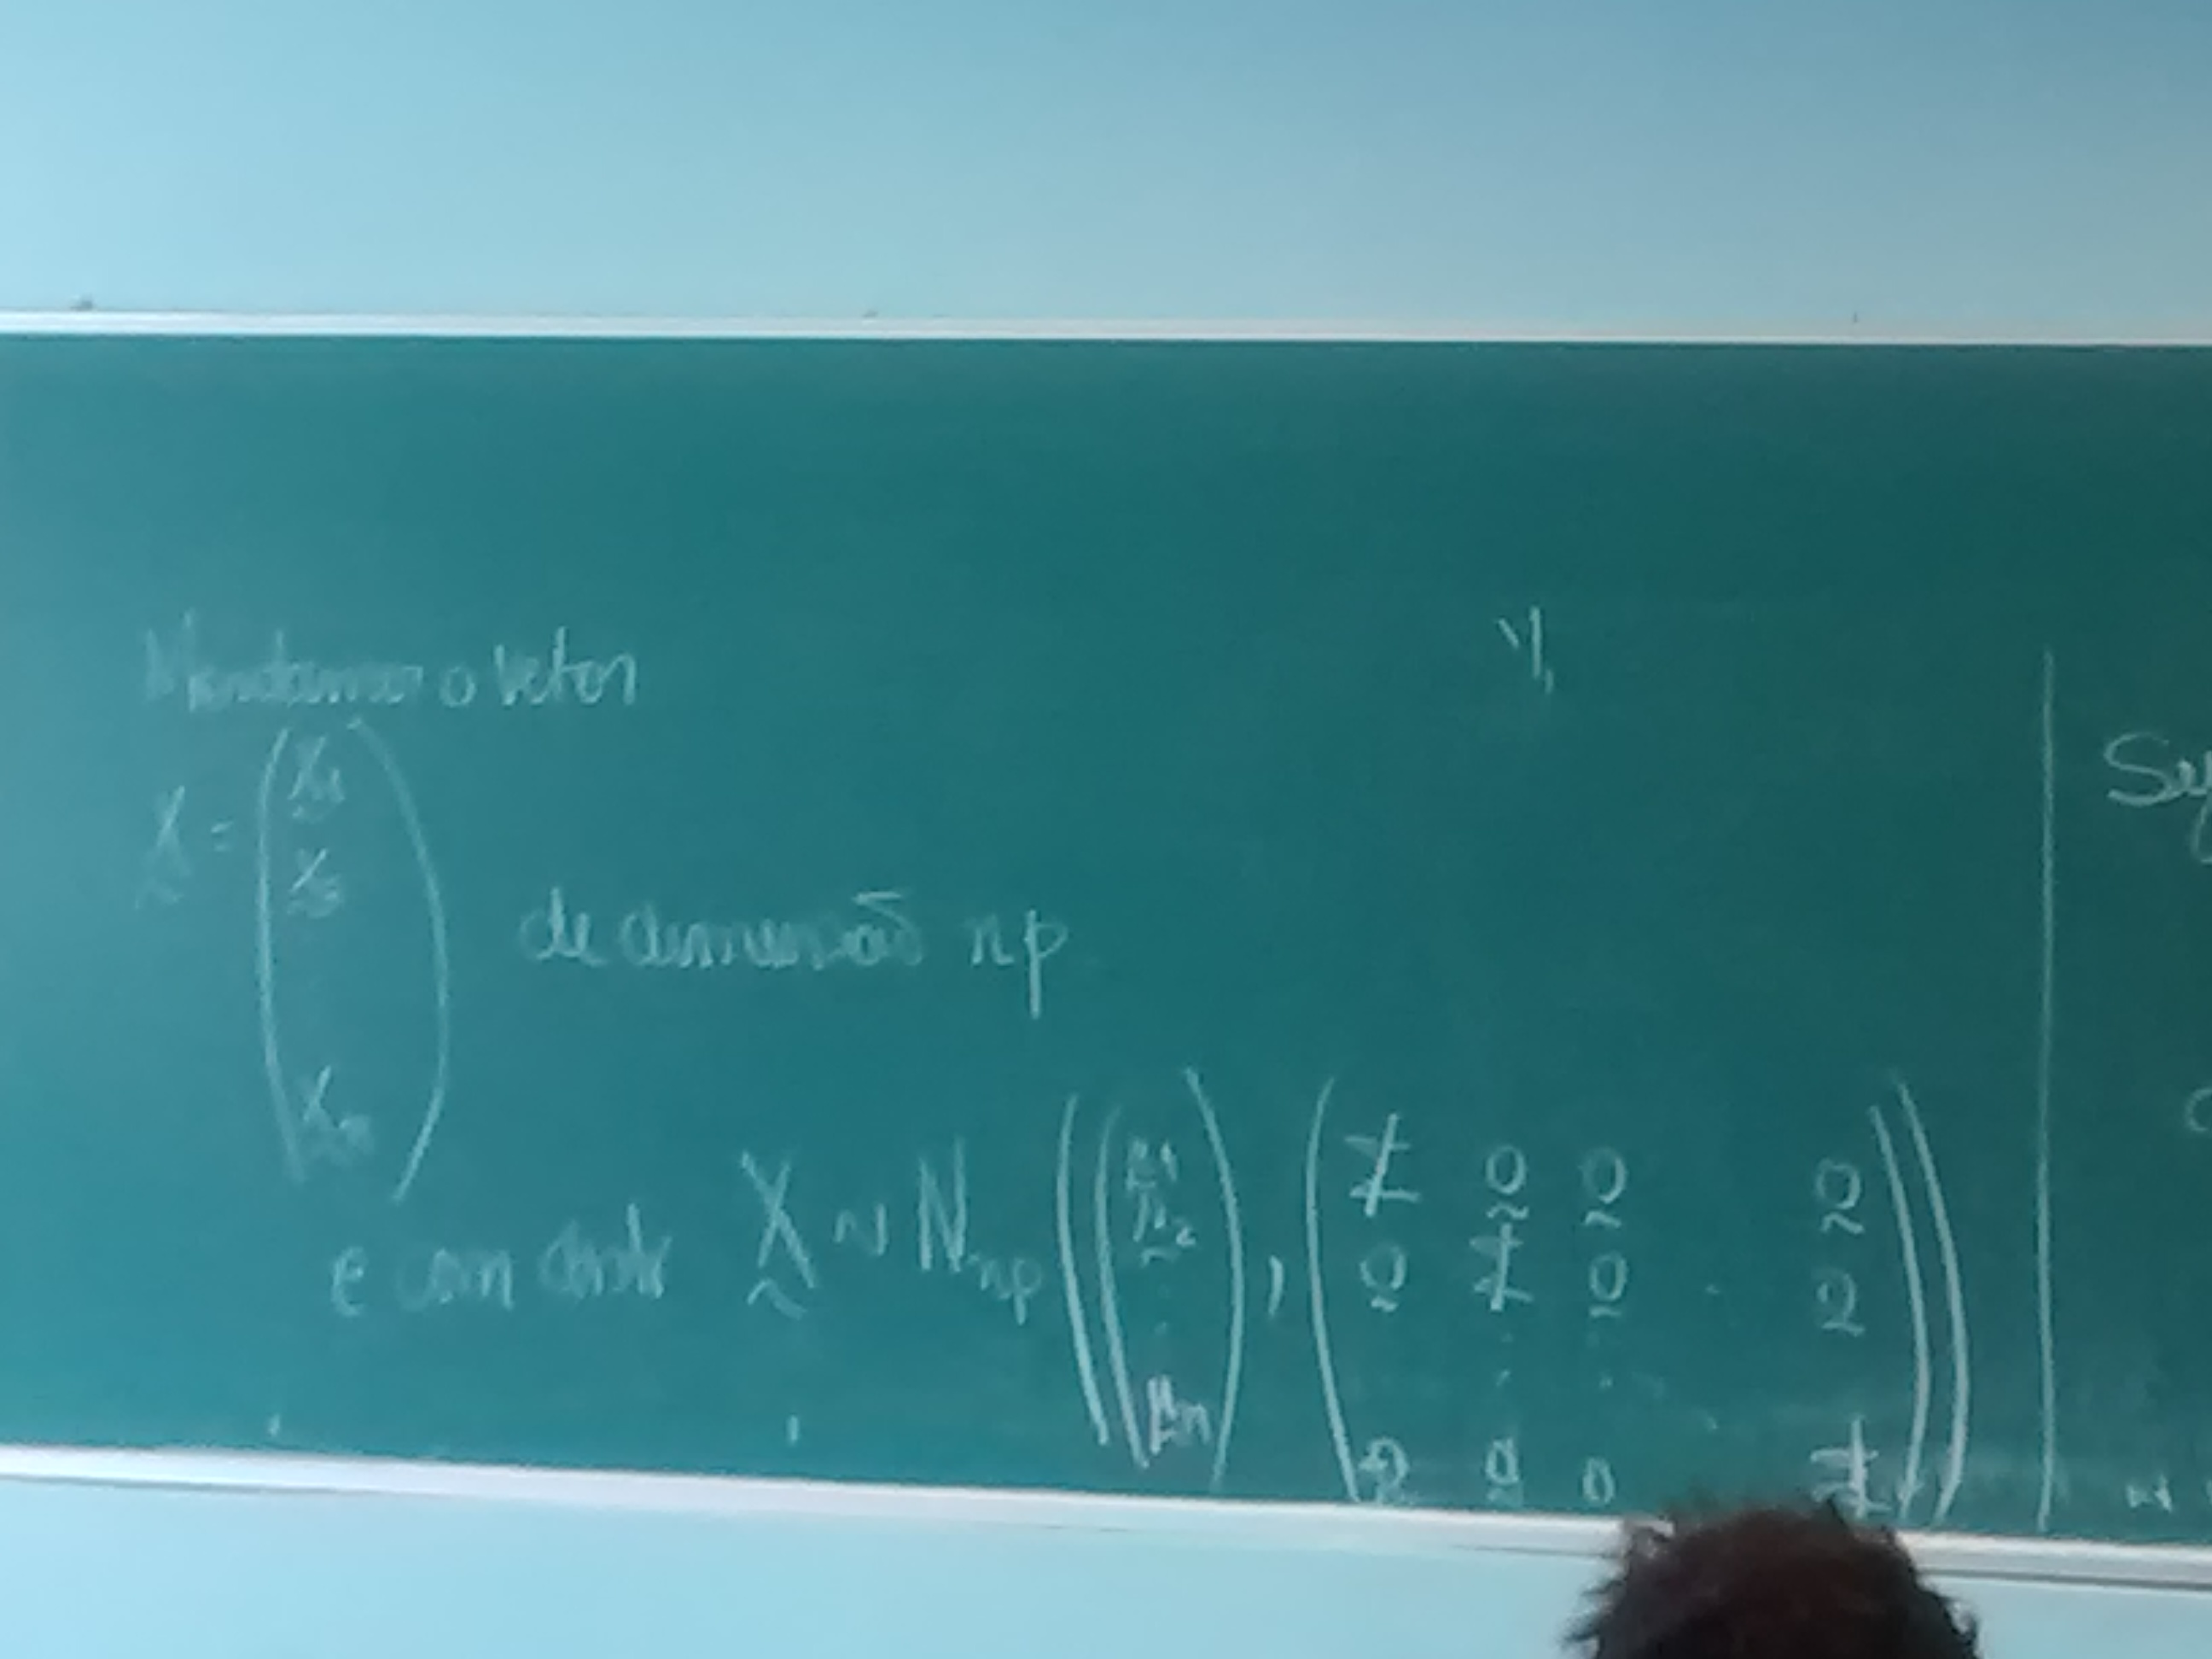 Montamos o vetor
Y₁
X = ( X₁
X₂
Xₙ )
de dimensão np
e com dist. X ~ N_np ( ( μ₁ μ₂ . . μₙ ) , ( Σ 0 0 0
0 Σ 0 . 0
0 0 0 Σ ) )